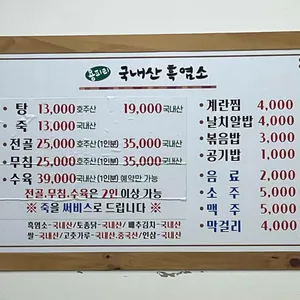 옹피리 국내산 흑염소
· 탕 13,000 호주산 19,000 국내산
· 죽 13,000 국내산
· 전골 25,000 호주산(1인분) 35,000 국내산
· 무침 25,000 호주산(1인분) 35,000 국내산
· 수육 39,000 국내산(1인분) 예약만 가능
전골,무침,수육은 2인 이상 가능
※ 죽을 써비스로 드립니다 ※
흑염소-국내산/토종닭-국내산/배추김치-국내산
쌀-국내산/고춧가루-국내산,중국산/인삼-국내산
· 계란찜 4,000
· 날치알밥 4,000
· 볶음밥 3,000
· 공기밥 1,000
· 음료 2,000
· 소주 5,000
· 맥주 5,000
· 막걸리 4,000